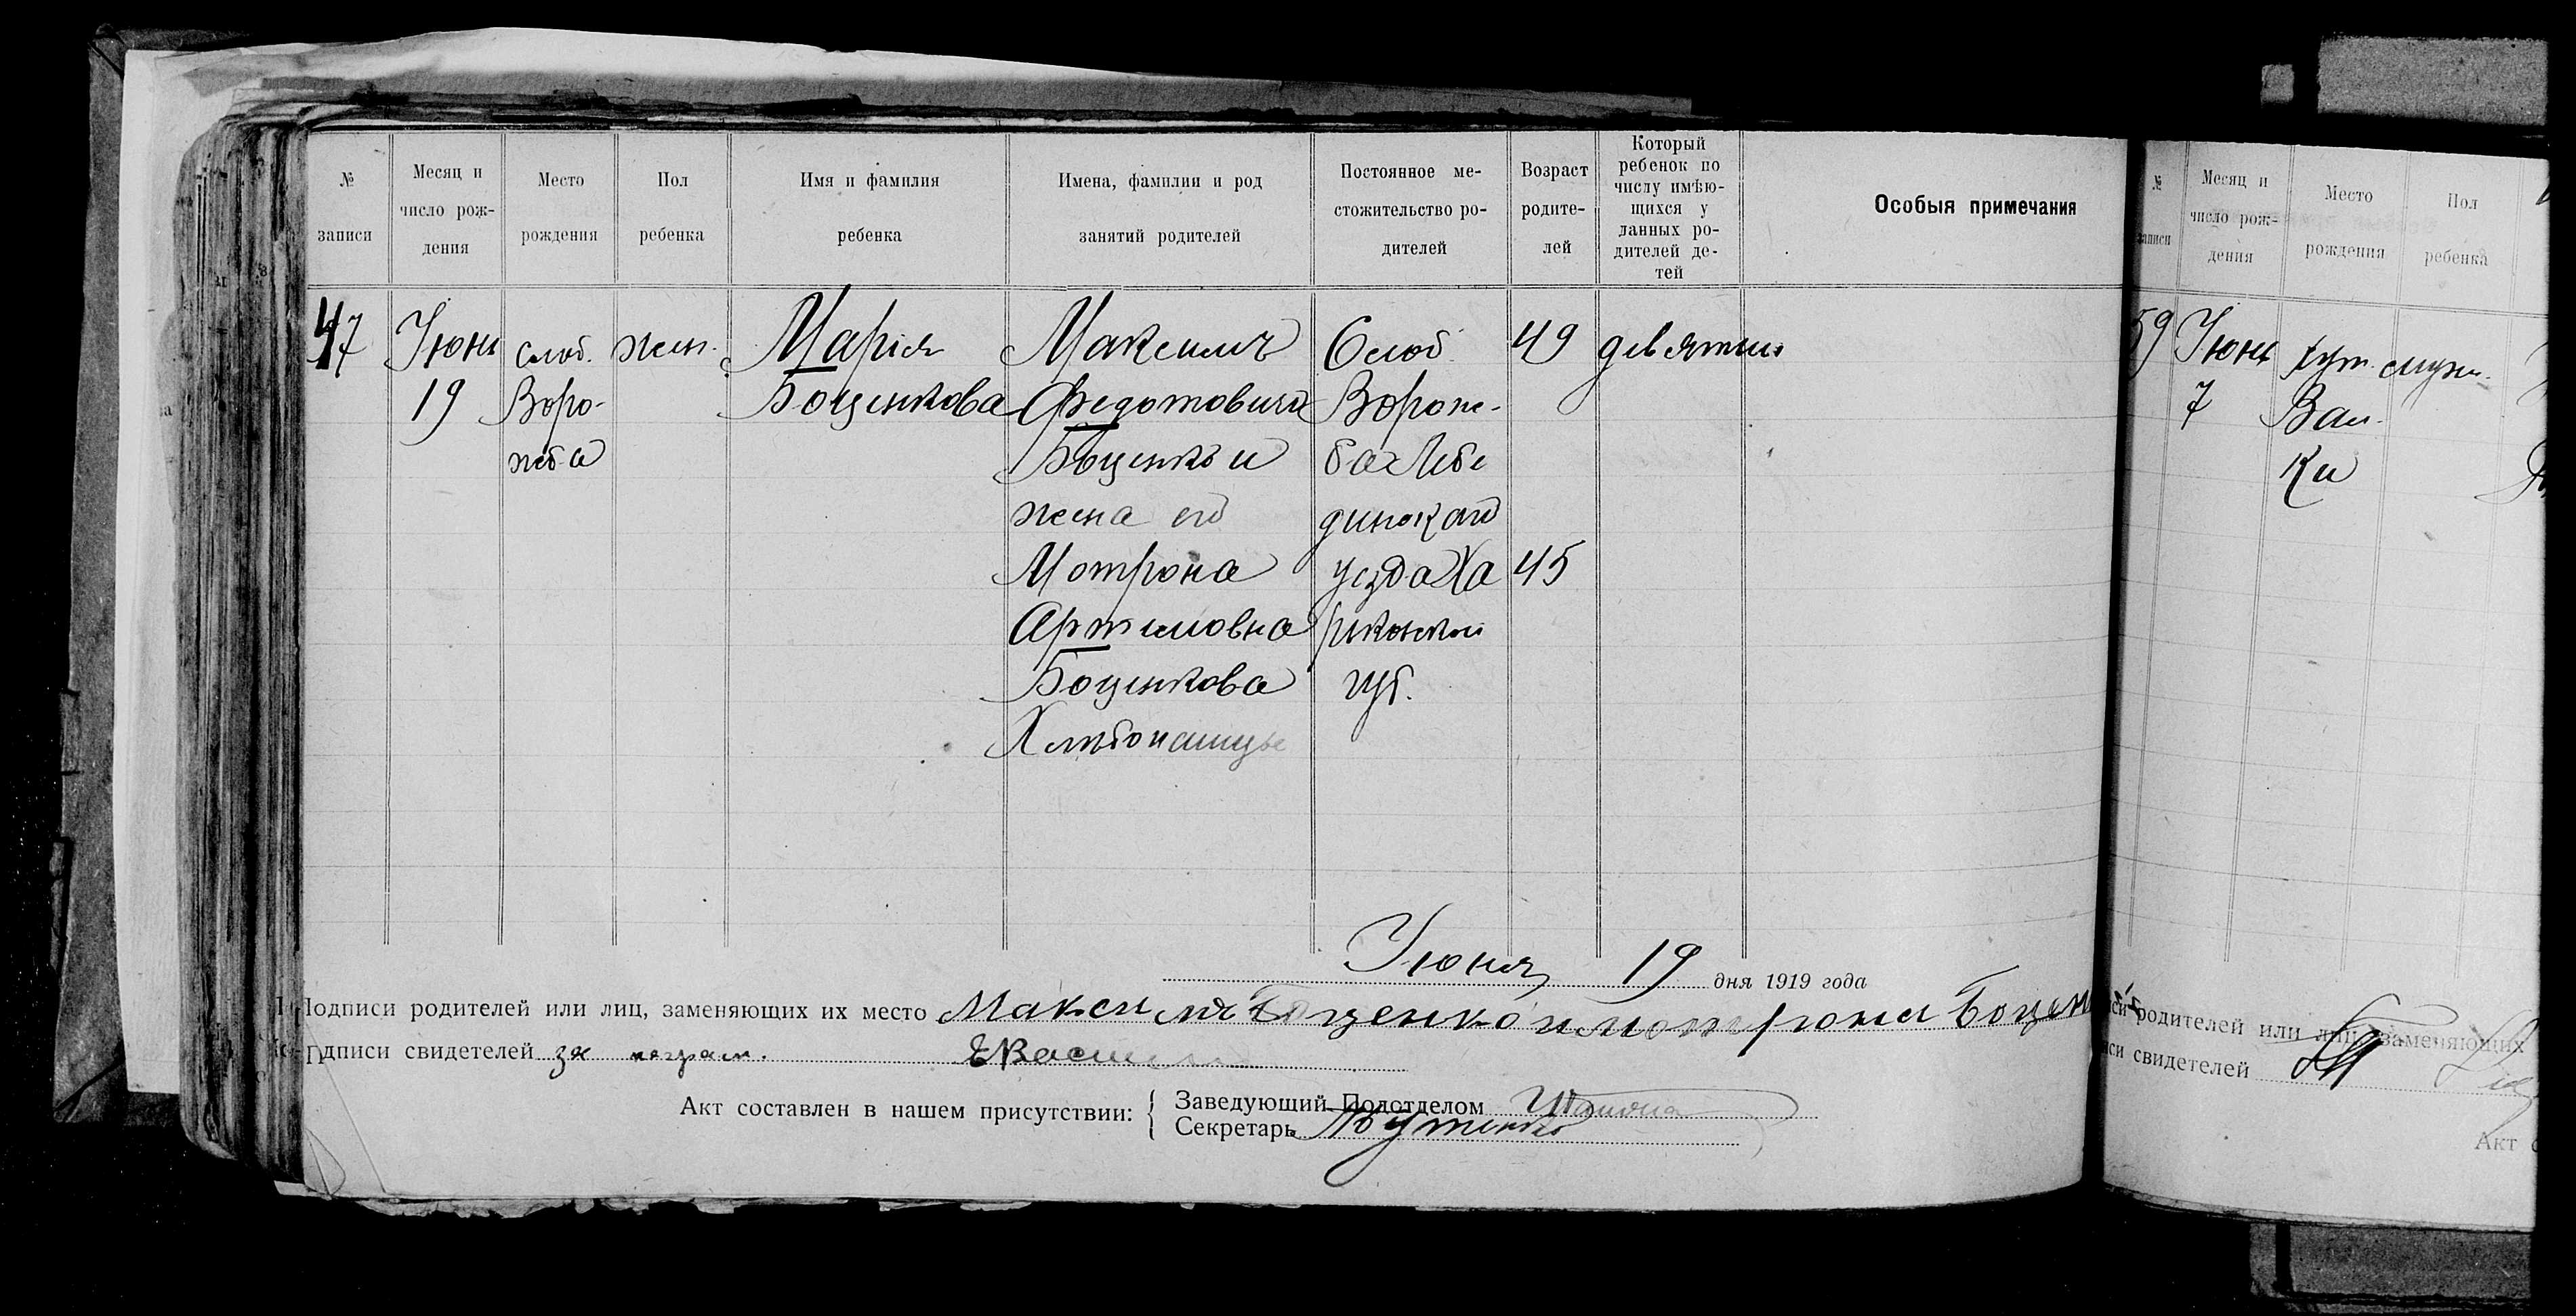 № записи
Месяц и число рож-
дения
Место рождения
Пол ребенка
Имя и фамилия ребенка
Имена, фамилии и род занятий родителей
Постоянное ме-
стожительство ро-
дителей
Возраст родите-
лей
Который
ребенок по
числу имѣю-
щихся у
данных ро-
дителей де-
тей
Особыя примечания
47
Июнь
19
Слоб.
Воро-
жба
жен.
Марія
Боценкова
Максимъ
Федотовичъ
Боценко и
жена его
Мотрона
Артемовна
Боценкова
Хлебопашцы
Слоб.
Ворож-
ба Лебе
динскаго
уезда Ха
рьковской
губ.
49
45
девятый
Июня 19 дня 1919 года
Подписи родителей или лиц, заменяющих их место Максимъ Боценко и мотрона Боцен
Подписи свидетелей за неграм.
Акт составлен в нашем присутствии:
Заведующий Подотделом
Секретарь
№ записи
Месяц и
число рож-
дения
Место
рождения
Пол
ребенка
59
Июнь
7
хут.
Вал-
ки
муж.
си родителей или лиц, заменяющих
иси свидетелей
Акт